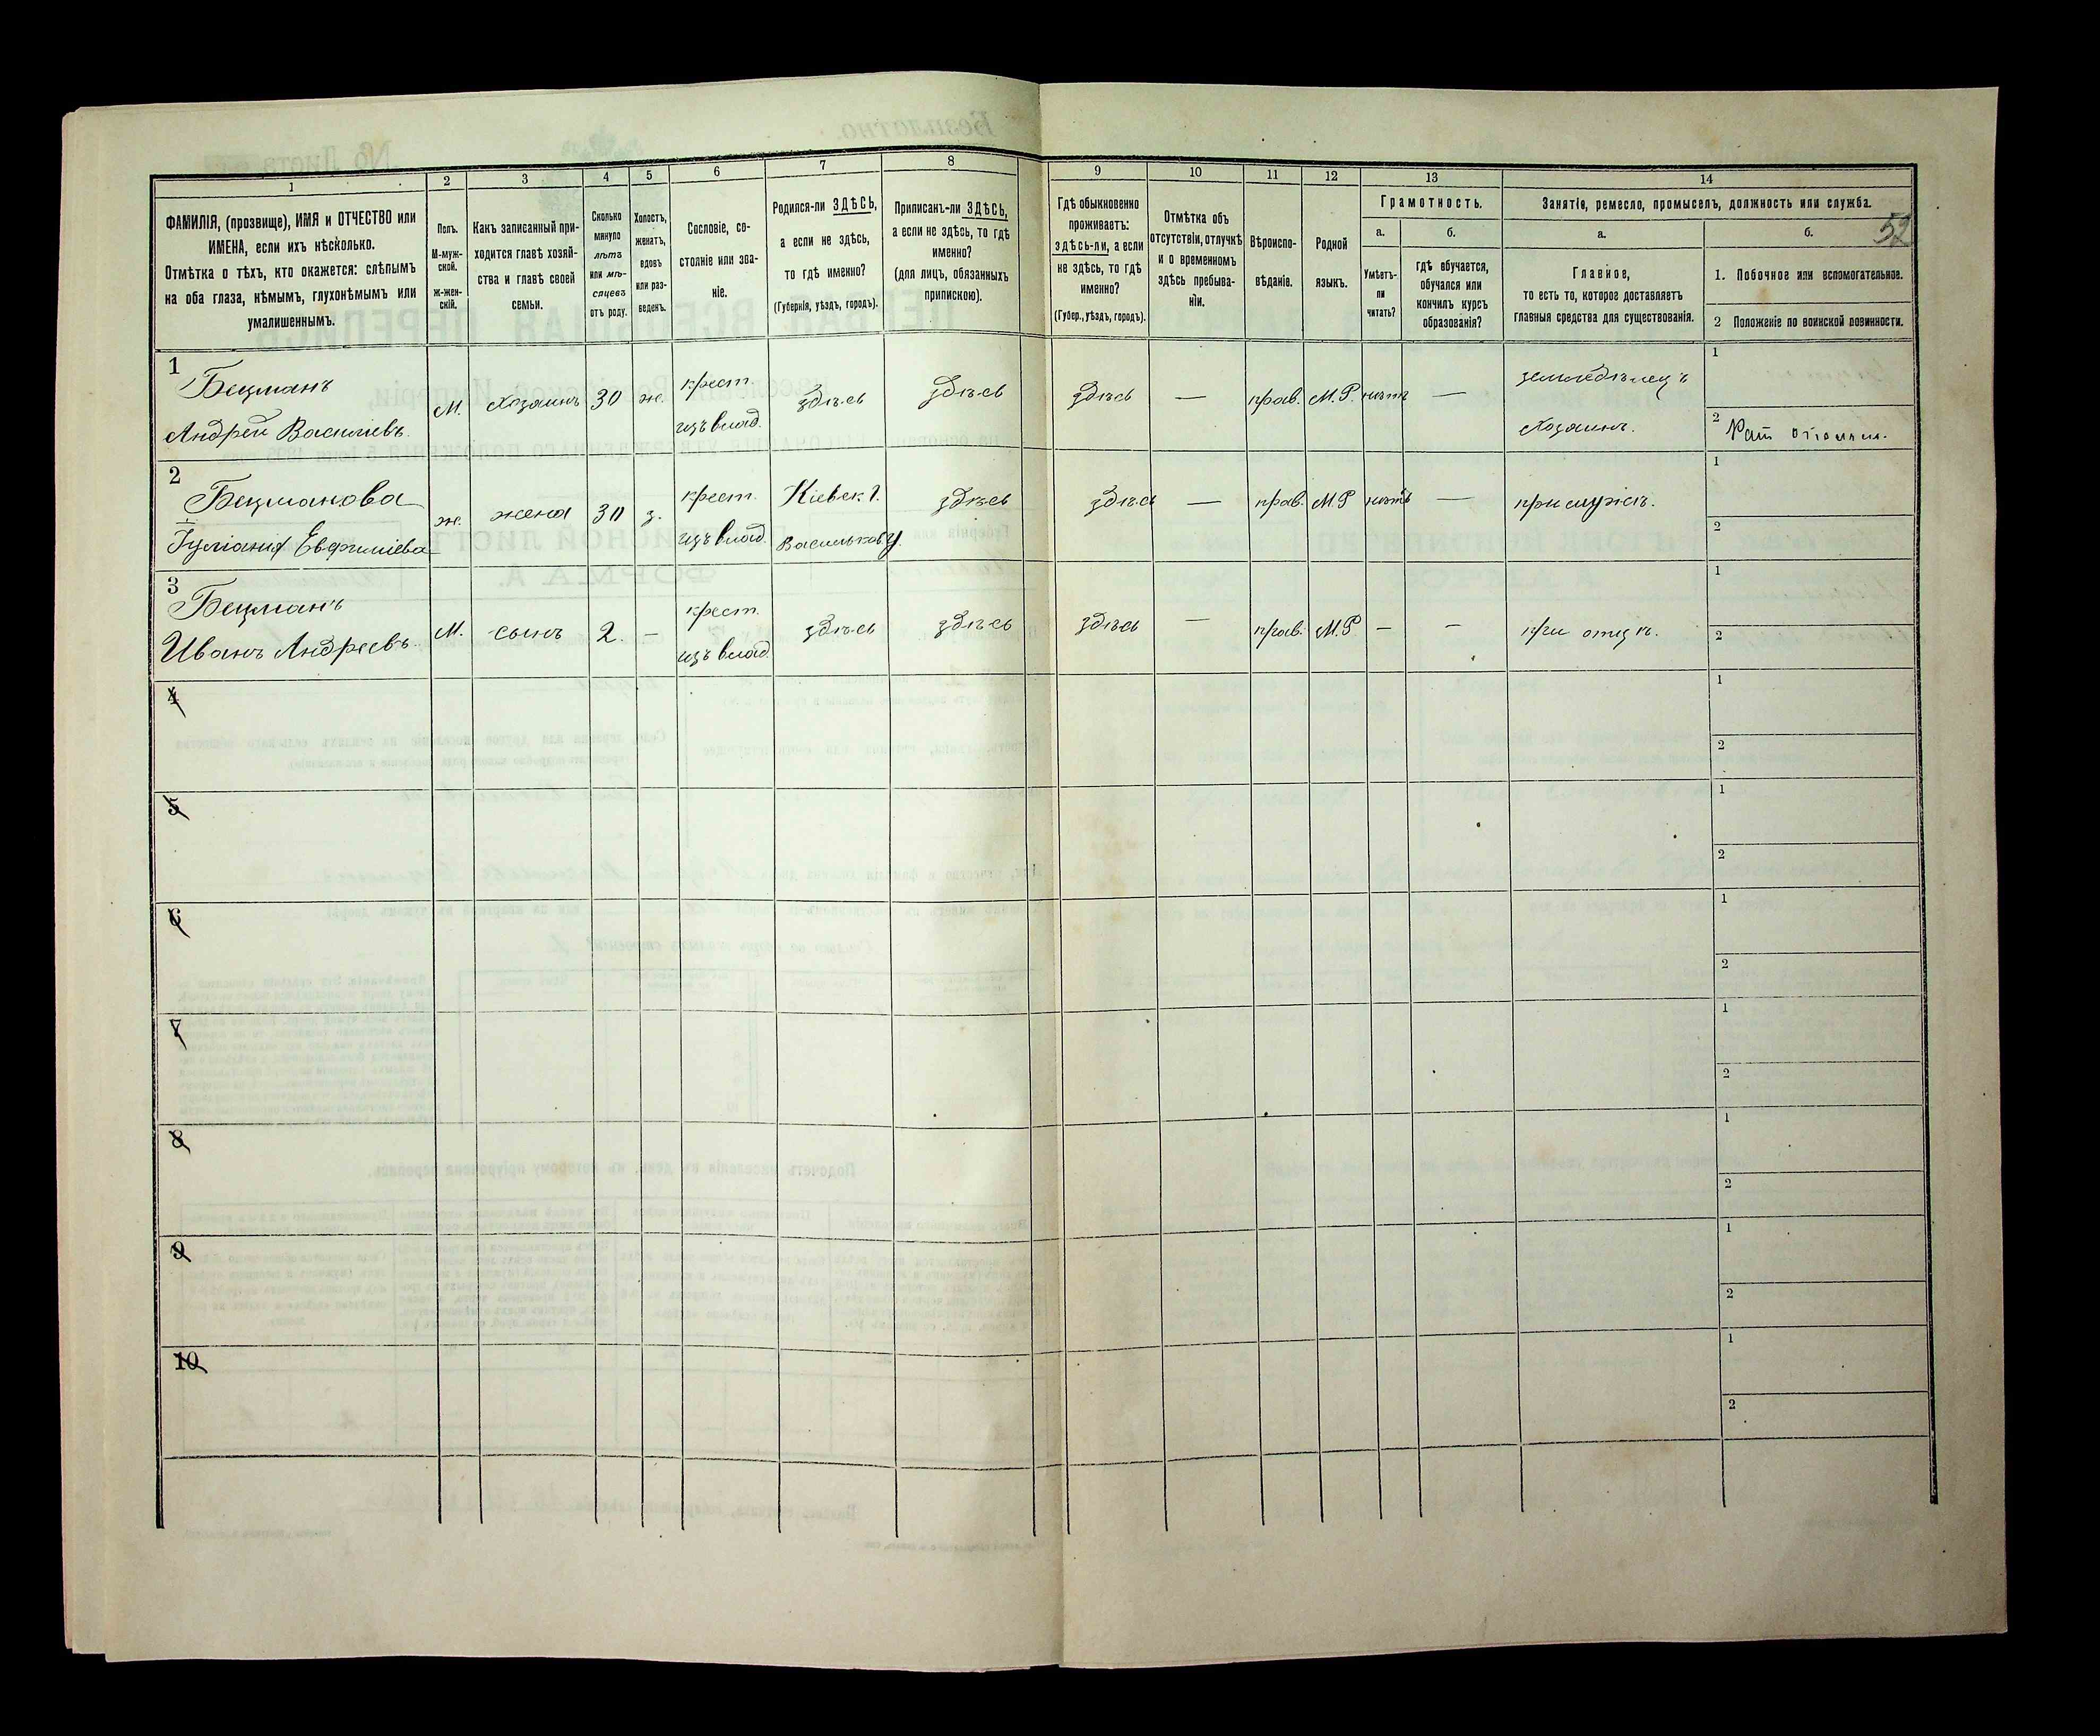 1 2 3 4 5 6 7 8 9 10 11 12 13 14
ФАМИЛІЯ, (прозвище), ИМЯ и ОТЧЕСТВО или
ИМЕНА, если ихъ нѣсколько.
Отмѣтка о тѣхъ, кто окажется: слѣпымъ
на оба глаза, нѣмымъ, глухонѣмымъ или
умалишеннымъ.
Полъ.
М-муж-
ской.
Ж-жен-
скій.
Какъ записанный при-
ходится главѣ хозяй-
ства и главѣ своей
семьи.
Сколько
минуло
лѣтъ
или мѣ-
сяцевъ
отъ роду.
Холостъ,
женатъ,
вдовъ
или раз-
веденъ.
Сословіе, со-
стояніе или зва-
ніе.
Родился-ли ЗДѢСЬ,
а если не здѣсь,
то гдѣ именно?
(Губернія, уѣздъ, городъ).
Приписанъ-ли ЗДѢСЬ,
а если не здѣсь, то гдѣ
именно?
(для лицъ, обязанныхъ
припискою).
Гдѣ обыкновенно
проживаетъ:
здѣсь-ли, а если
не здѣсь, то гдѣ
именно?
(Губер., уѣздъ, городъ).
Отмѣтка объ
отсутствіи, отлучкѣ
и о временномъ
здѣсь пребыва-
ніи.
Вѣроиспо-
вѣданіе.
Родной
языкъ.
Грамотность.
а.
Умѣетъ-
ли
читать?
б.
гдѣ обучается,
обучался или
кончилъ курсъ
образованія?
Занятіе, ремесло, промыселъ, должность или служба.
52
а.
Главное,
то есть то, которое доставляетъ
главныя средства для существованія.
б.
1. Побочное или вспомогательное.
2 Положеніе по воинской повинности.
1
Бецманъ
Андрей Васильевъ.
М. Хозяинъ 30 ж.
крест.
изъ влад.
здѣсь здѣсь здѣсь — прав. М.Р. нѣтъ —
земледѣлецъ
Хозяинъ.
1
2 Рат ополчен.
2
Бецманова
Іуліанія Евфиміева
ж. жена 30 з.
крест.
изъ влад.
Кіевск г.
Васильков у.
здѣсь здѣсь — прав. М.Р нѣтъ —
при мужѣ.
1
2
3
Бецманъ
Иванъ Андреевъ.
М. сынъ 2. —
крест.
изъ влад.
здѣсь здѣсь здѣсь — прав. М.Р — —
при отцѣ.
1
2
4
1
2
5
1
2
6
1
2
7
1
2
8
1
2
9
1
2
10
1
2